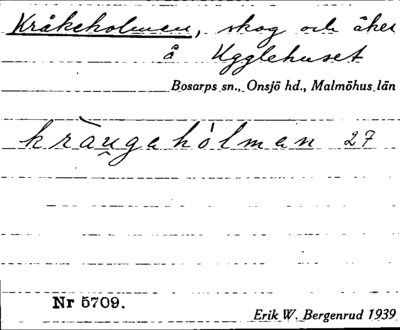 Kråkeholmen, skog och åker
å Ugglehuset
Bosarps sn., Onsjö hd., Malmöhus län
kràu̯gahòlman 27
Nr 5709.
Erik W. Bergenrud 1939